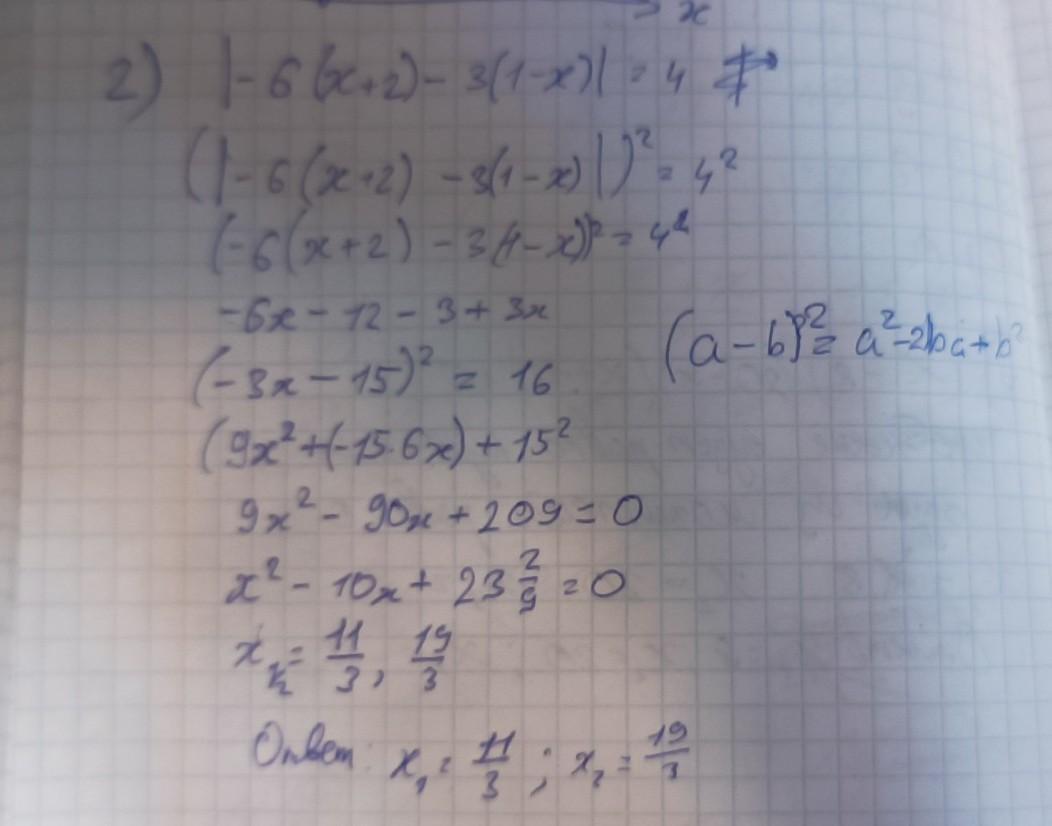 x
2) |-6(x+2)-3(1-x)| = 4
(|-6(x+2) -3(1-x)|)² = 4²
(-6(x+2) - 3(1-x))² = 4²
-6x - 12 - 3 + 3x
(a-b)² = a²-2ba+b²
(-3x-15)² = 16
(9x²+(-15·6x)+15²
9x² - 90x + 209 = 0
x² - 10x + 23 2/9 = 0
x = 11/3, 19/3
Ответ: x₁ = 11/3 ; x₂ = 19/3